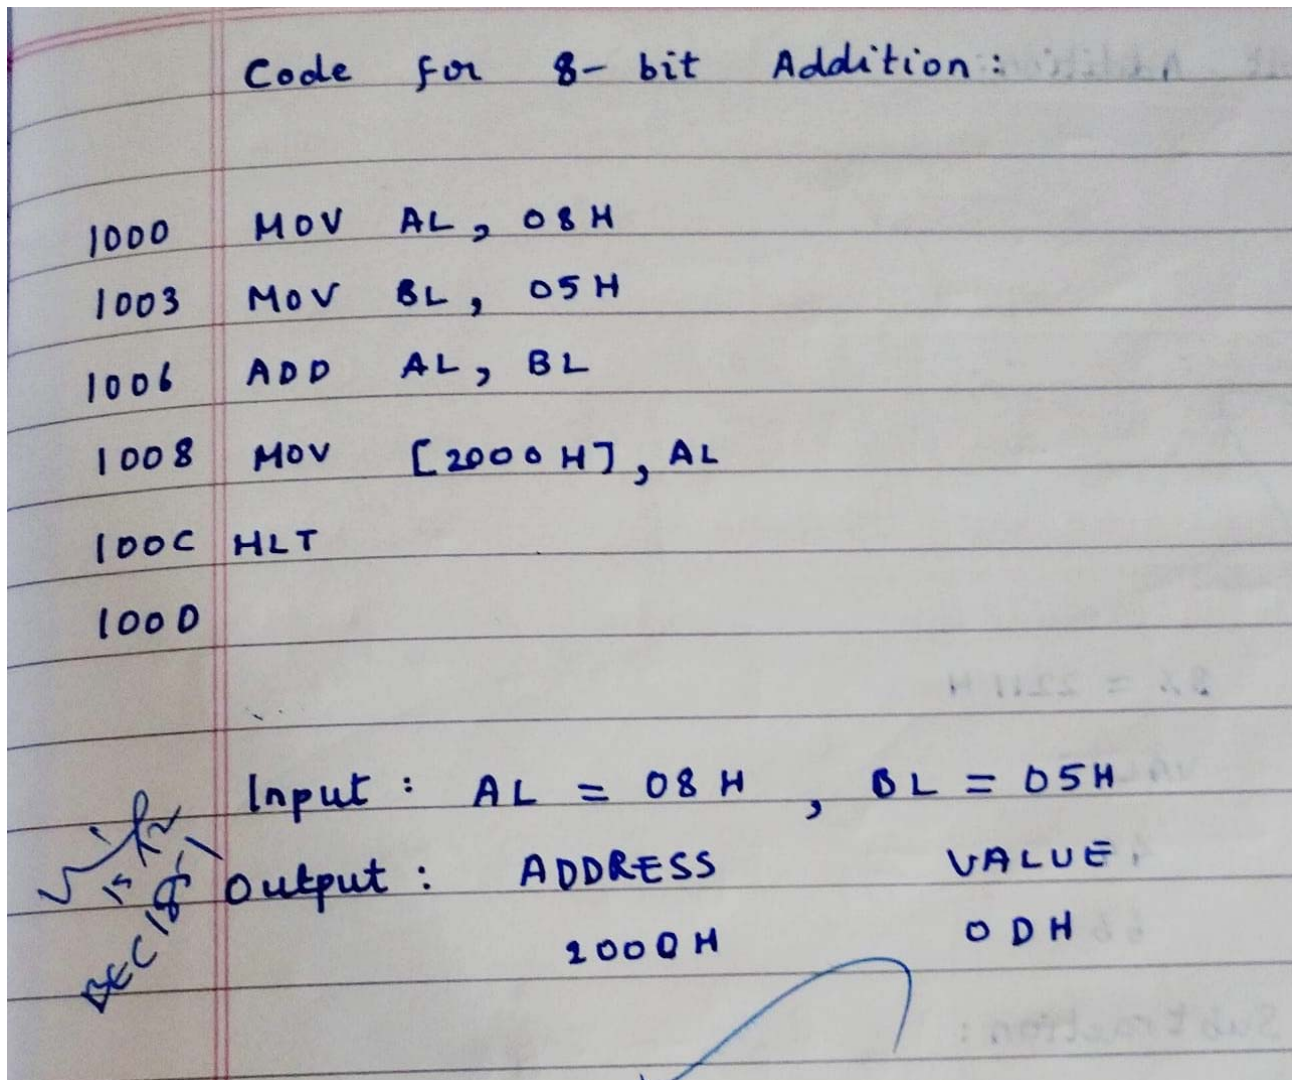 Code for 8-bit Addition:
1000 MOV AL, 08H
1003 MOV BL, 05H
1006 ADD AL, BL
1008 MOV [2000H], AL
100C HLT
100D
Input: AL = 08H, BL = 05H
Output: ADDRESS VALUE
2000H 0DH